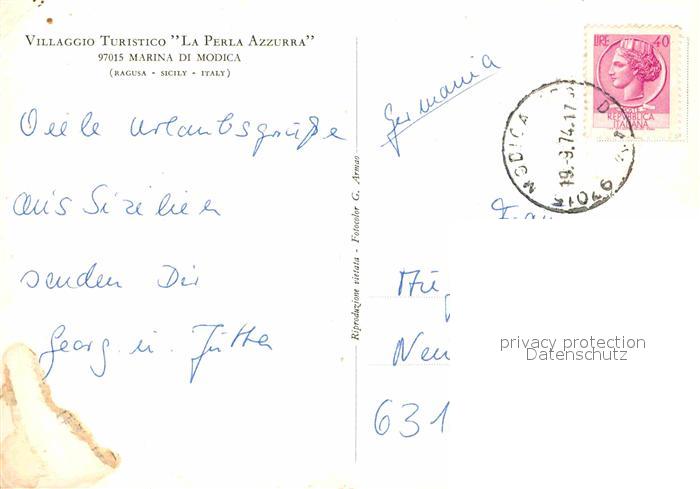 VILLAGGIO TURISTICO "LA PERLA AZZURRA"
97015 MARINA DI MODICA
(RAGUSA - SICILY - ITALY)
Viele Urlaubsgrüße
aus Sizilien
senden Dir
Georg u. Jutta
Riproduzione vietata - Fotocolor G. Armao
Germania
LIRE 40
POSTE
REPVBBLICA
ITALIANA
MODICA
19.9.74.17
Neu
631
privacy protection
Datenschutz